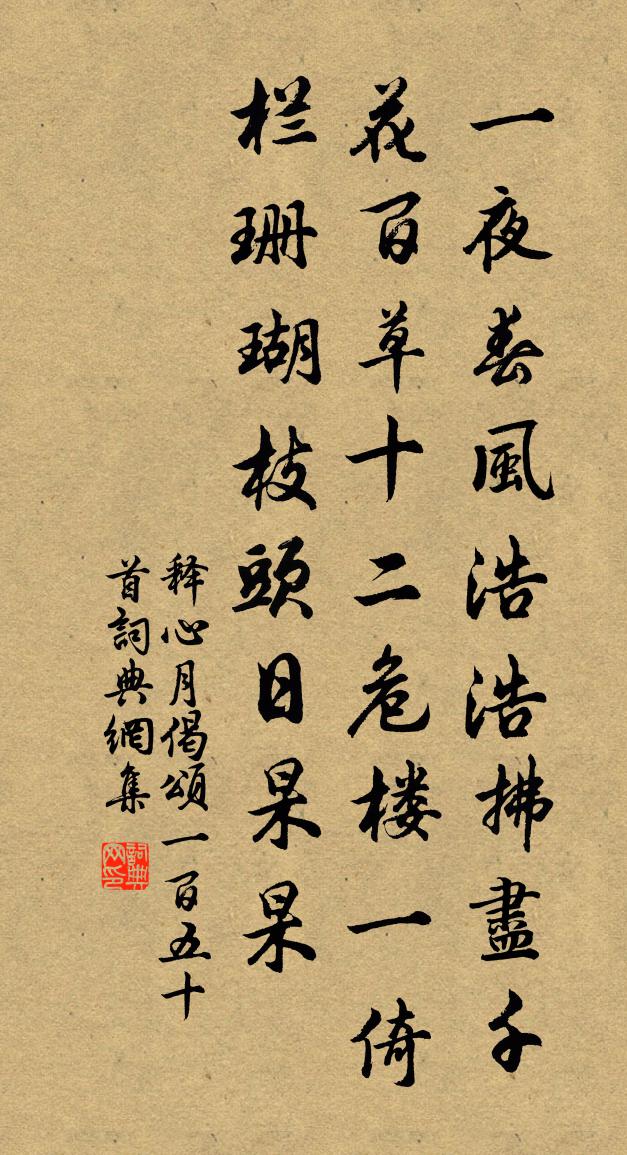 一夜春風浩浩拂盡千
花百草十二危楼一倚
栏珊瑚枝頭日杲杲
释心月偈頌一百五十
首詞典網集
詞典
网印